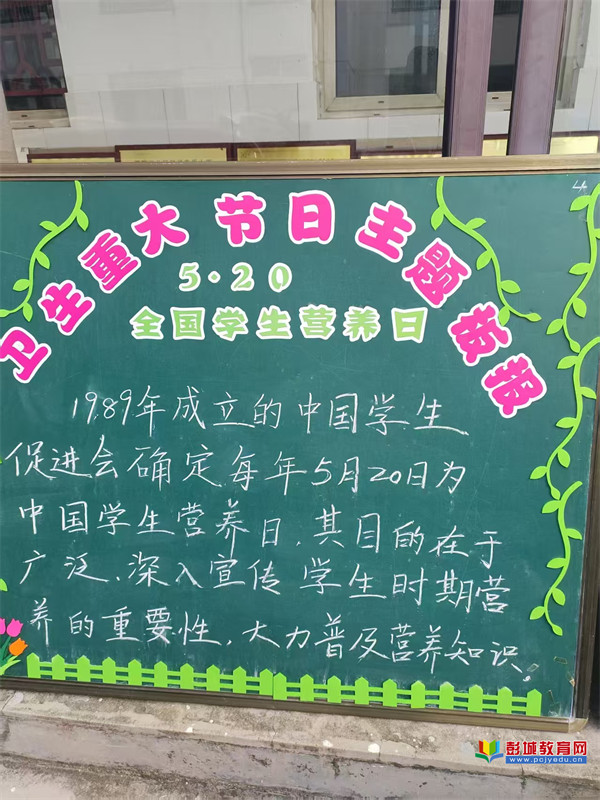 卫生重大节日主题板报
5·20
全国学生营养日
1989年成立的中国学生
促进会确定每年5月20日为
中国学生营养日,其目的在于
广泛、深入宣传学生时期营
养的重要性,大力普及营养知识。
彭城教育网
www.pcjyedu.cn